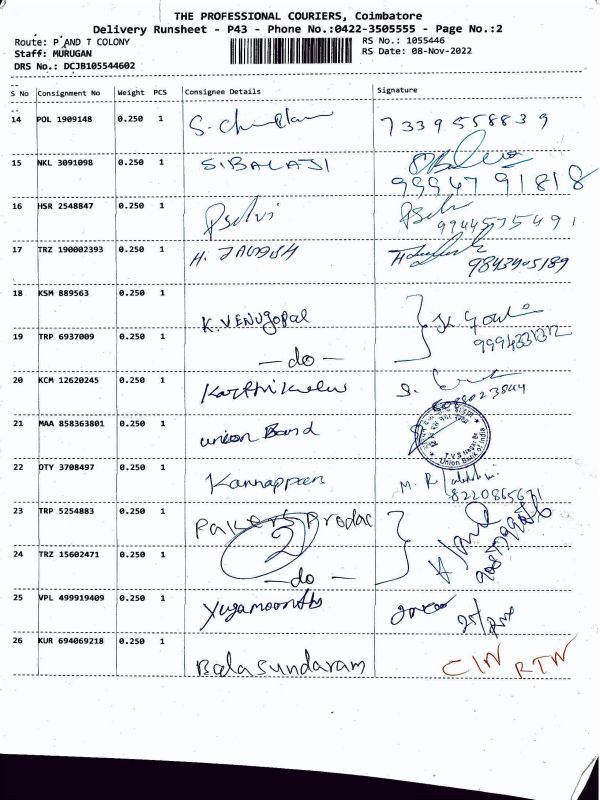 THE PROFESSIONAL COURIERS, Coimbatore
Delivery Runsheet - P43 - Phone No.:0422-3505555 - Page No.:2
Route: P AND T COLONY
RS No.: 1055446
Staff: MURUGAN
RS Date: 08-Nov-2022
DRS No.: DCJB105544602
S No Consignment No Weight PCS Consignee Details Signature
14 POL 1909148 0.250 1 7339558839
15 NKL 3091098 0.250 1 S.BALAJI
99947 91818
16 HSR 2548847 0.250 1 Pselvi
9944575491
17 TRZ 190002393 0.250 1 9843905189
18 KSM 889563 0.250 1
K.VENUGOPAL
19 TRP 6937009 0.250 1
— do —
20 KCM 12620245 0.250 1
21 MAA 858363801 0.250 1 union Band
T.V.S Nagar Br.
Union Bank of India
22 DTY 3708497 0.250 1 Kannappan
8220865671
23 TRP 5254883 0.250 1
2
24 TRZ 15602471 0.250 1
— do —
25 VPL 499919409 0.250 1
26 KUR 694069218 0.250 1 Balasundaram RTN